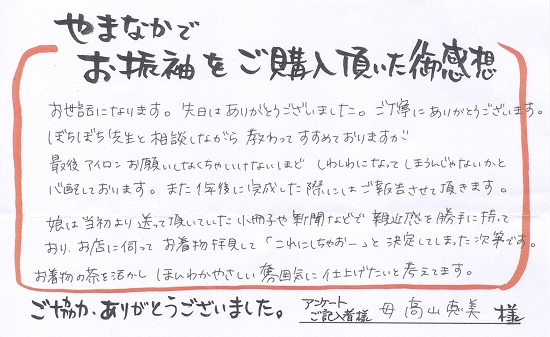 やまなかで
お振袖をご購入頂いた御感想
お世話になります。先日はありがとうございました。ご丁寧にありがとうございます。
ぼちぼち先生と相談しながら教わってすすめておりますが
最後アイロンお願いしなくちゃいけないほど しわしわになってしまうんじゃないかと
心配しております。また1年後に完成した際にはご報告させて頂きます。
娘は当初より送って頂いていた小冊子や新聞などで親近感を勝手に持って
おり、お店に伺ってお着物拝見して「これにしちゃおー」と決定してしまった次第です。
お着物の茶を活かし ほんわかやさしい雰囲気に仕上げたいと考えてます。
ご協力、ありがとうございました。 アンケートご記入者様 母 高山恵美 様